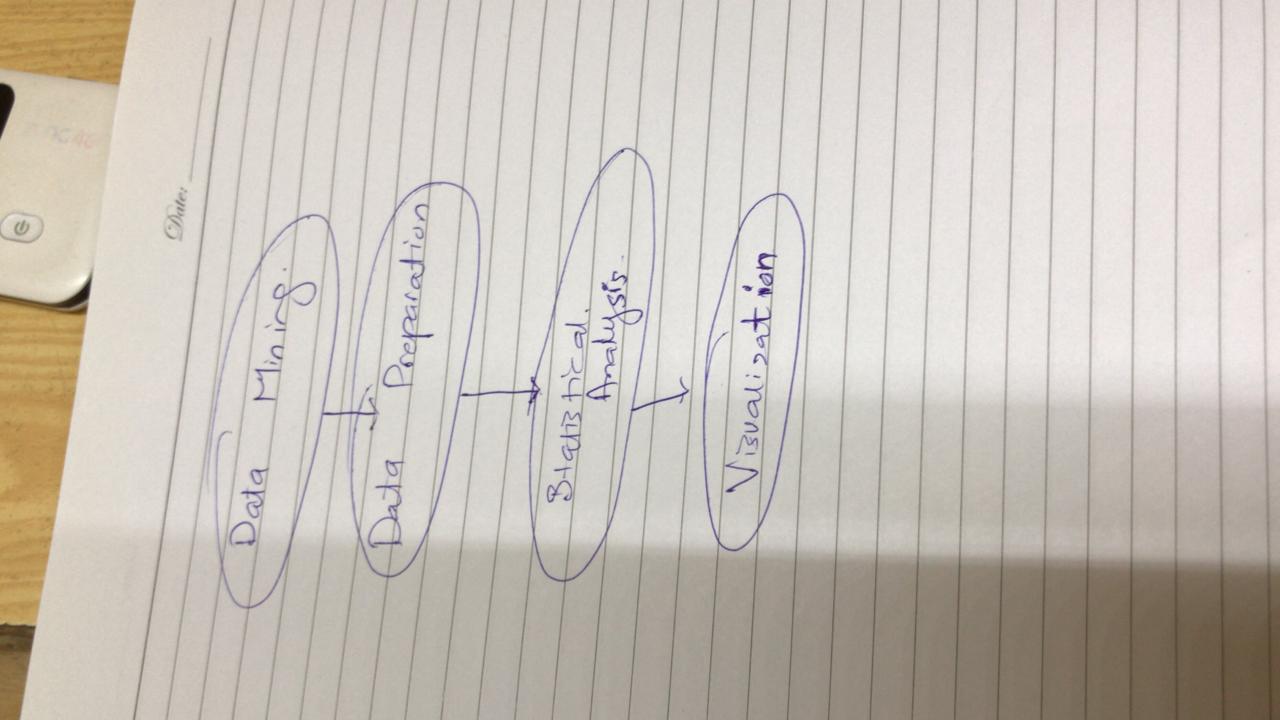 Date:
Data Mining.
Data Preparation
Statistical.
Analysis.
Visualization